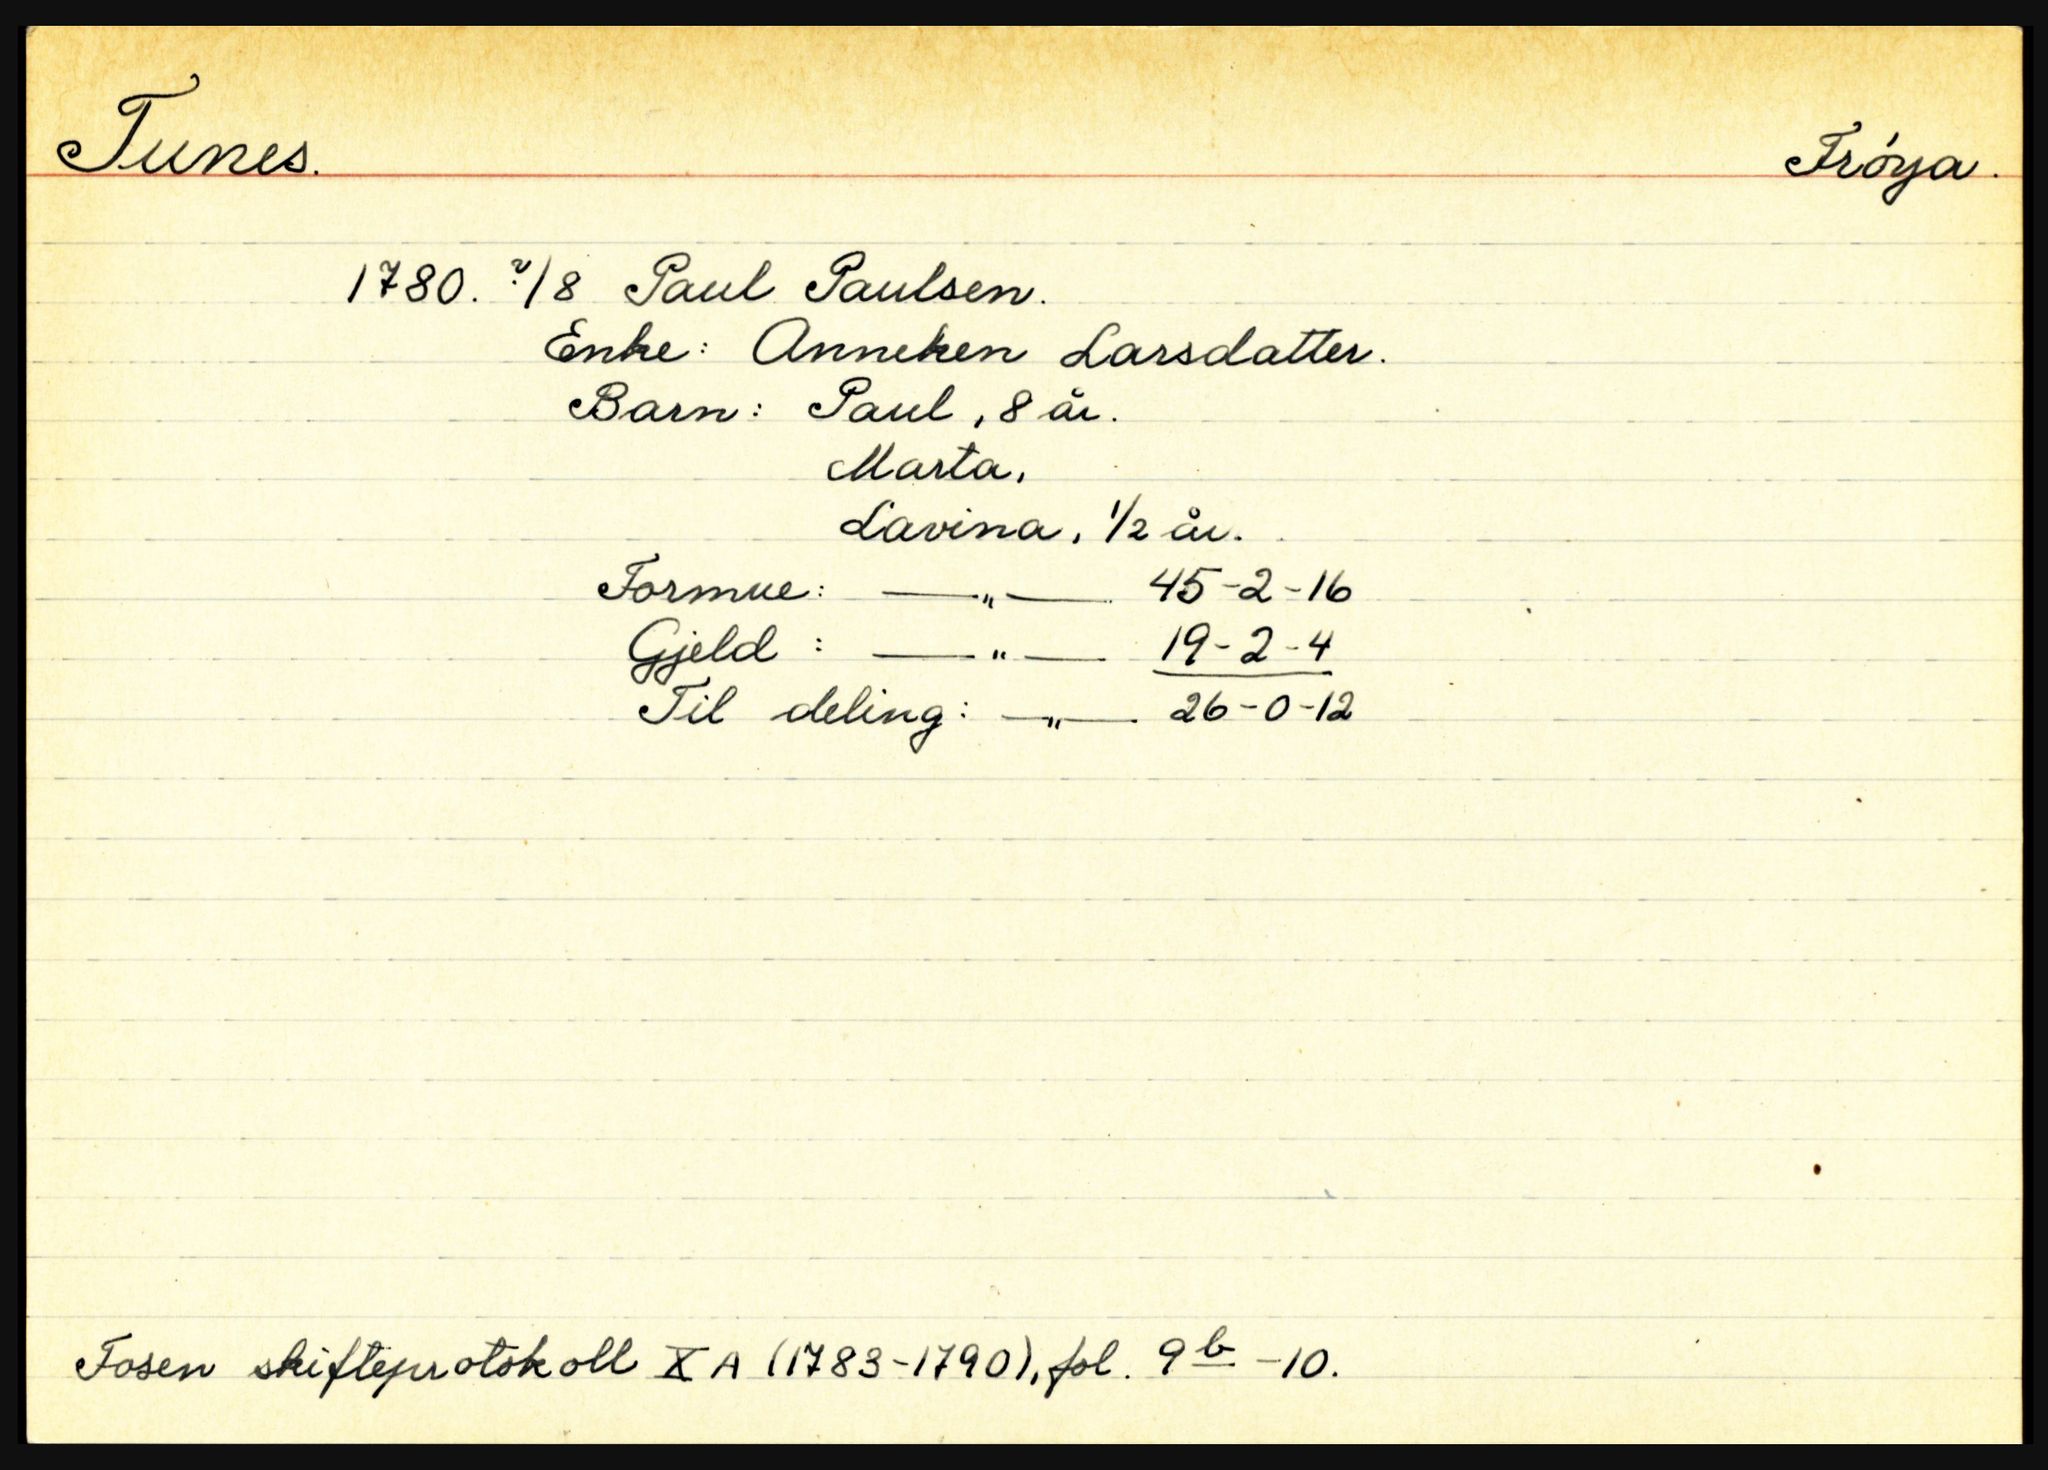 Tunes. Frøya.
1780. ?/8 Paul Paulsen.
Enke: Anneken Larsdatter.
Barn: Paul, 8 år.
Marta,
Lavina, 1/2 år.
Formue: —„— 45-2-16
Gjeld: —„— 19-2-4
Til deling: —„— 26-0-12
Fosen skifteprotokoll X A (1783-1790), fol. 9b-10.